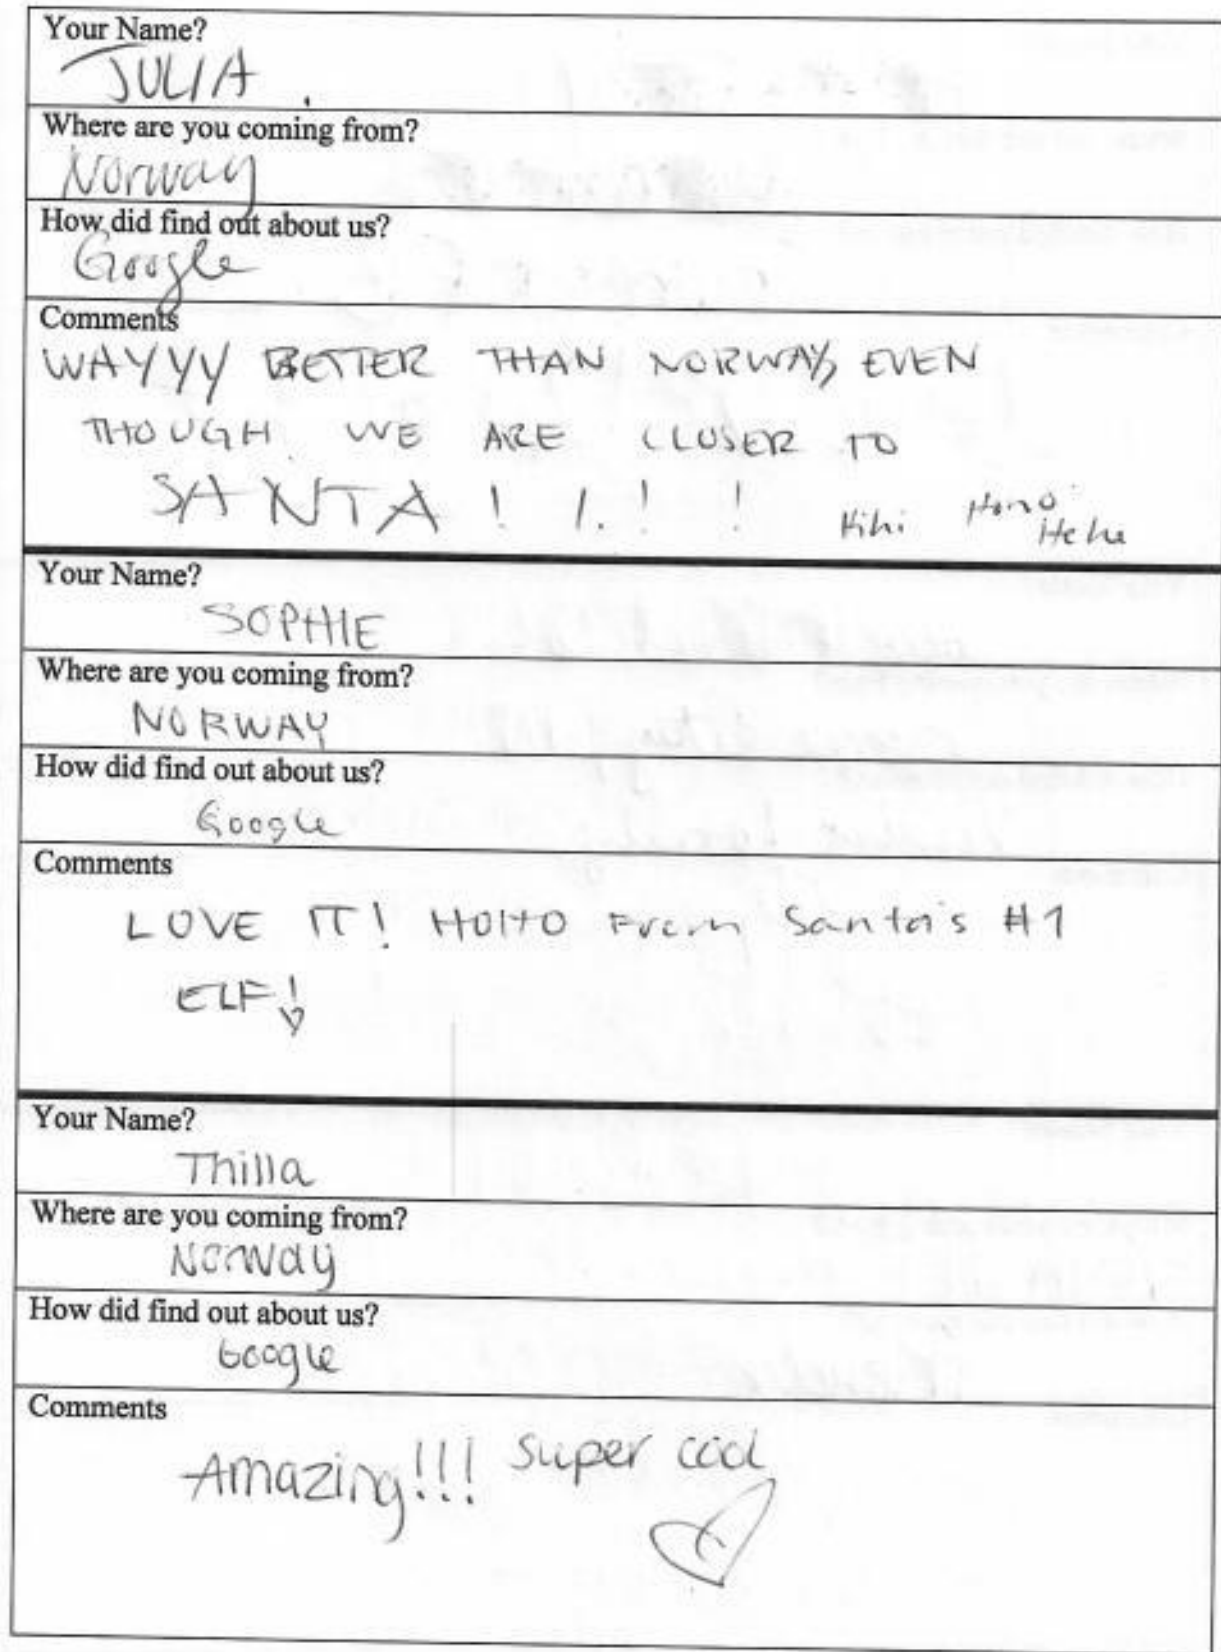 Your Name?
JULIA
Where are you coming from?
Norway
How did find out about us?
Google
Comments
WAYYY BETTER THAN NORWAY, EVEN
THOUGH WE ARE CLOSER TO
SANTA ! ! ! ! Hihi Hoho
Hehe
Your Name?
SOPHIE
Where are you coming from?
NORWAY
How did find out about us?
Google
Comments
LOVE IT! HOHO From Santa's #1
ELF!
Your Name?
Thilla
Where are you coming from?
Norway
How did find out about us?
Google
Comments
Amazing!!! super cool